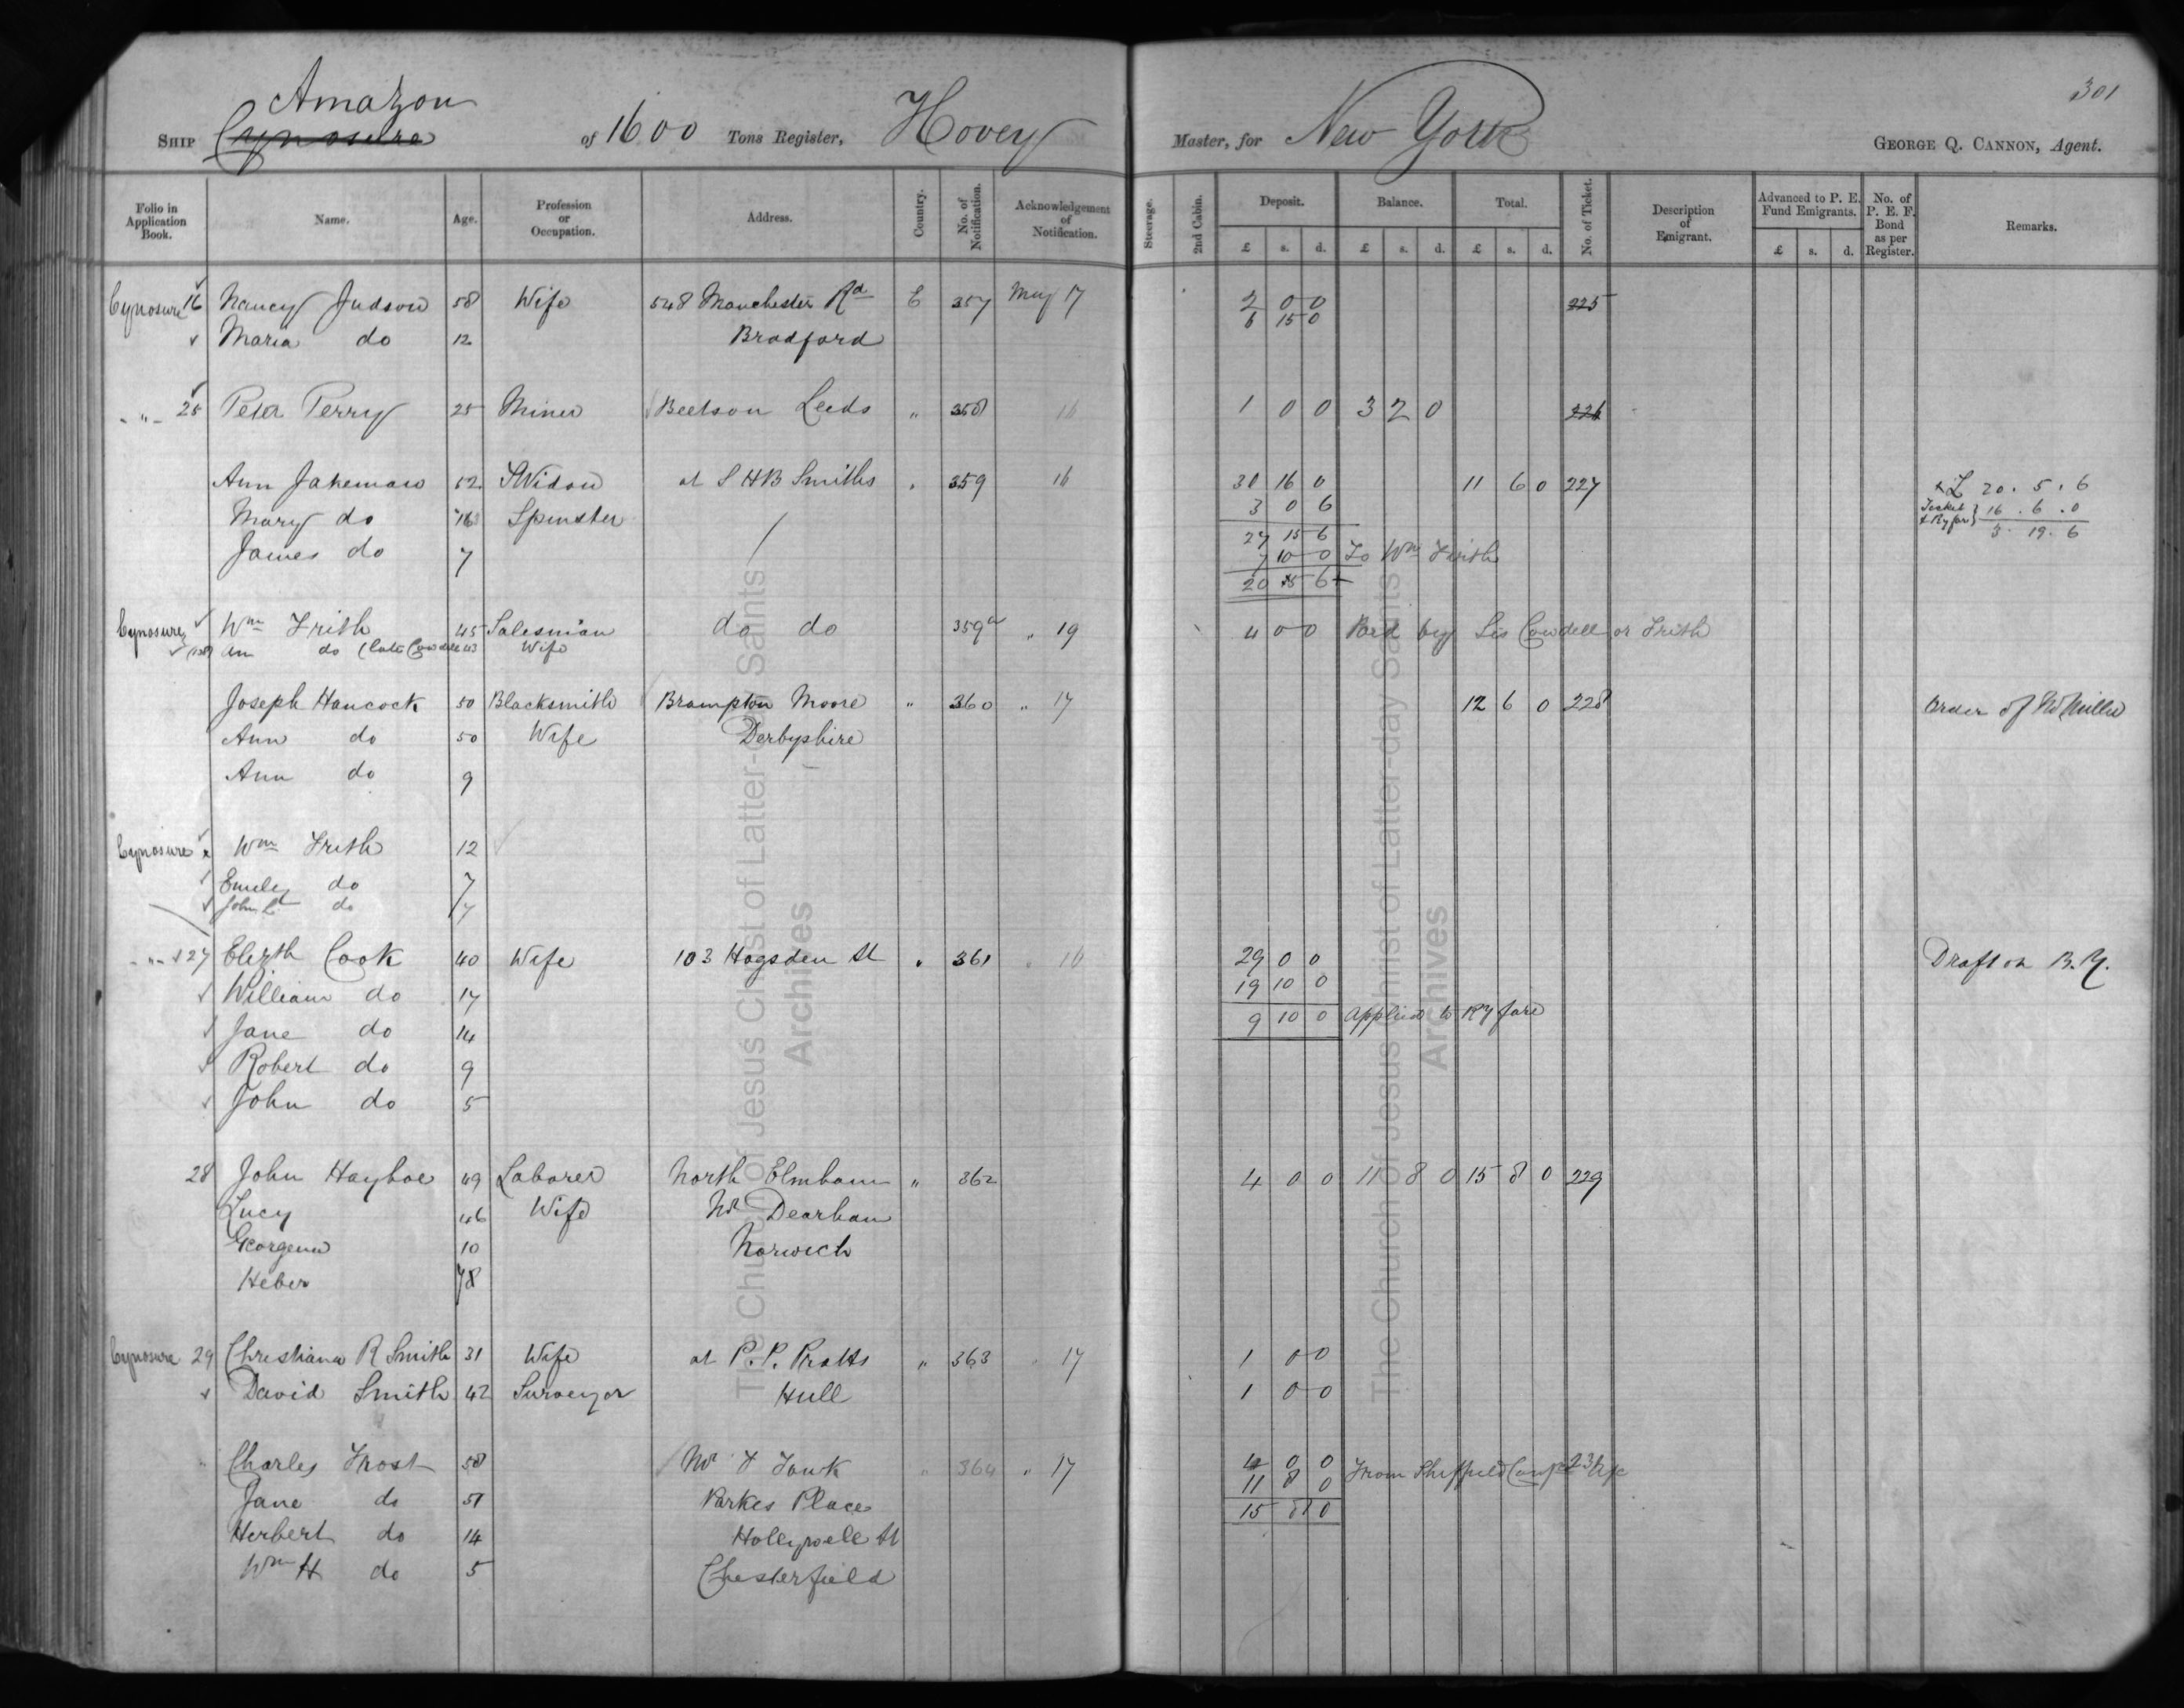 301
Amazon
SHIP Cynosure of 1600 Tons Register, Hovey Master, for New York GEORGE Q. CANNON, Agent.
Folio in Application Book. Name. Age. Profession or Occupation. Address. Country. No. of Notification. Acknowledgement of Notification. Steerage. 2nd Cabin. Deposit. Balance. Total. No. of Ticket. Description of Emigrant. Advanced to P. E. Fund Emigrants. No. of P. E. F. Bond as per Register. Remarks.
£ s. d. £ s. d. £ s. d. £ s. d.
Cynosure 16 Nancy Judson 58 Wife 548 Manchester Rd E 357 May 17 2 0 0 225
6 15 0
Maria do 12 Bradford
" 25 Peter Perry 25 Miner Beetson Leeds " 358 16 1 0 0 3 2 0 226
Ann Jakeman 52 Widow at S H B Smiths " 359 16 30 16 0 11 6 0 227 £ 20 . 5 . 6
Mary do 16 Spinster 3 0 6 Ticket & Ry far } 16 . 6 . 0
27 15 6 3 . 19 . 6
James do 7 7 10 0 To Wm Frith
20 5 6
Cynosure Wm Frith 45 Salesman do do 359a " 19 4 0 0 Paid by Sis Cowdell or Frith
Ann do (late Cowdell 43 Wife
Joseph Hancock 50 Blacksmith Brampton Moore " 360 " 17 12 6 0 228 Order of
Ann do 50 Wife Derbyshire
Ann do 9
Cynosure Wm Frith 12
Emily do 7
John L do
" 27 Elizth Cook 40 Wife 103 Hogsden St " 361 " 16 29 0 0 Draft on B. Y.
William do 17 19 10 0
Jane do 14 9 10 0 Applied to Ry fare
Robert do 9
John do 5
28 John Hayhoe 49 Laborer North Elmham " 362 4 0 0 11 8 0 15 8 0 229
Lucy 46 Wife Nr Dearham
Georgena 10 Norwich
Heber 8
Cynosure 29 Christiana R Smith 31 Wife at P. P. Pratts " 363 " 17 1 0 0
David Smith 42 Surveyor Hull 1 0 0
" Charles Frost 58 " 364 " 17 4 0 0
11 8 0 From Sheffield Conf
Jane do 51 Parkes Place 15 8 0
Herbert do 14 Hollywell St
Wm H do 5 Chesterfield
The Church of Jesus Christ of Latter-day Saints
Archives
The Church of Jesus Christ of Latter-day Saints
Archives